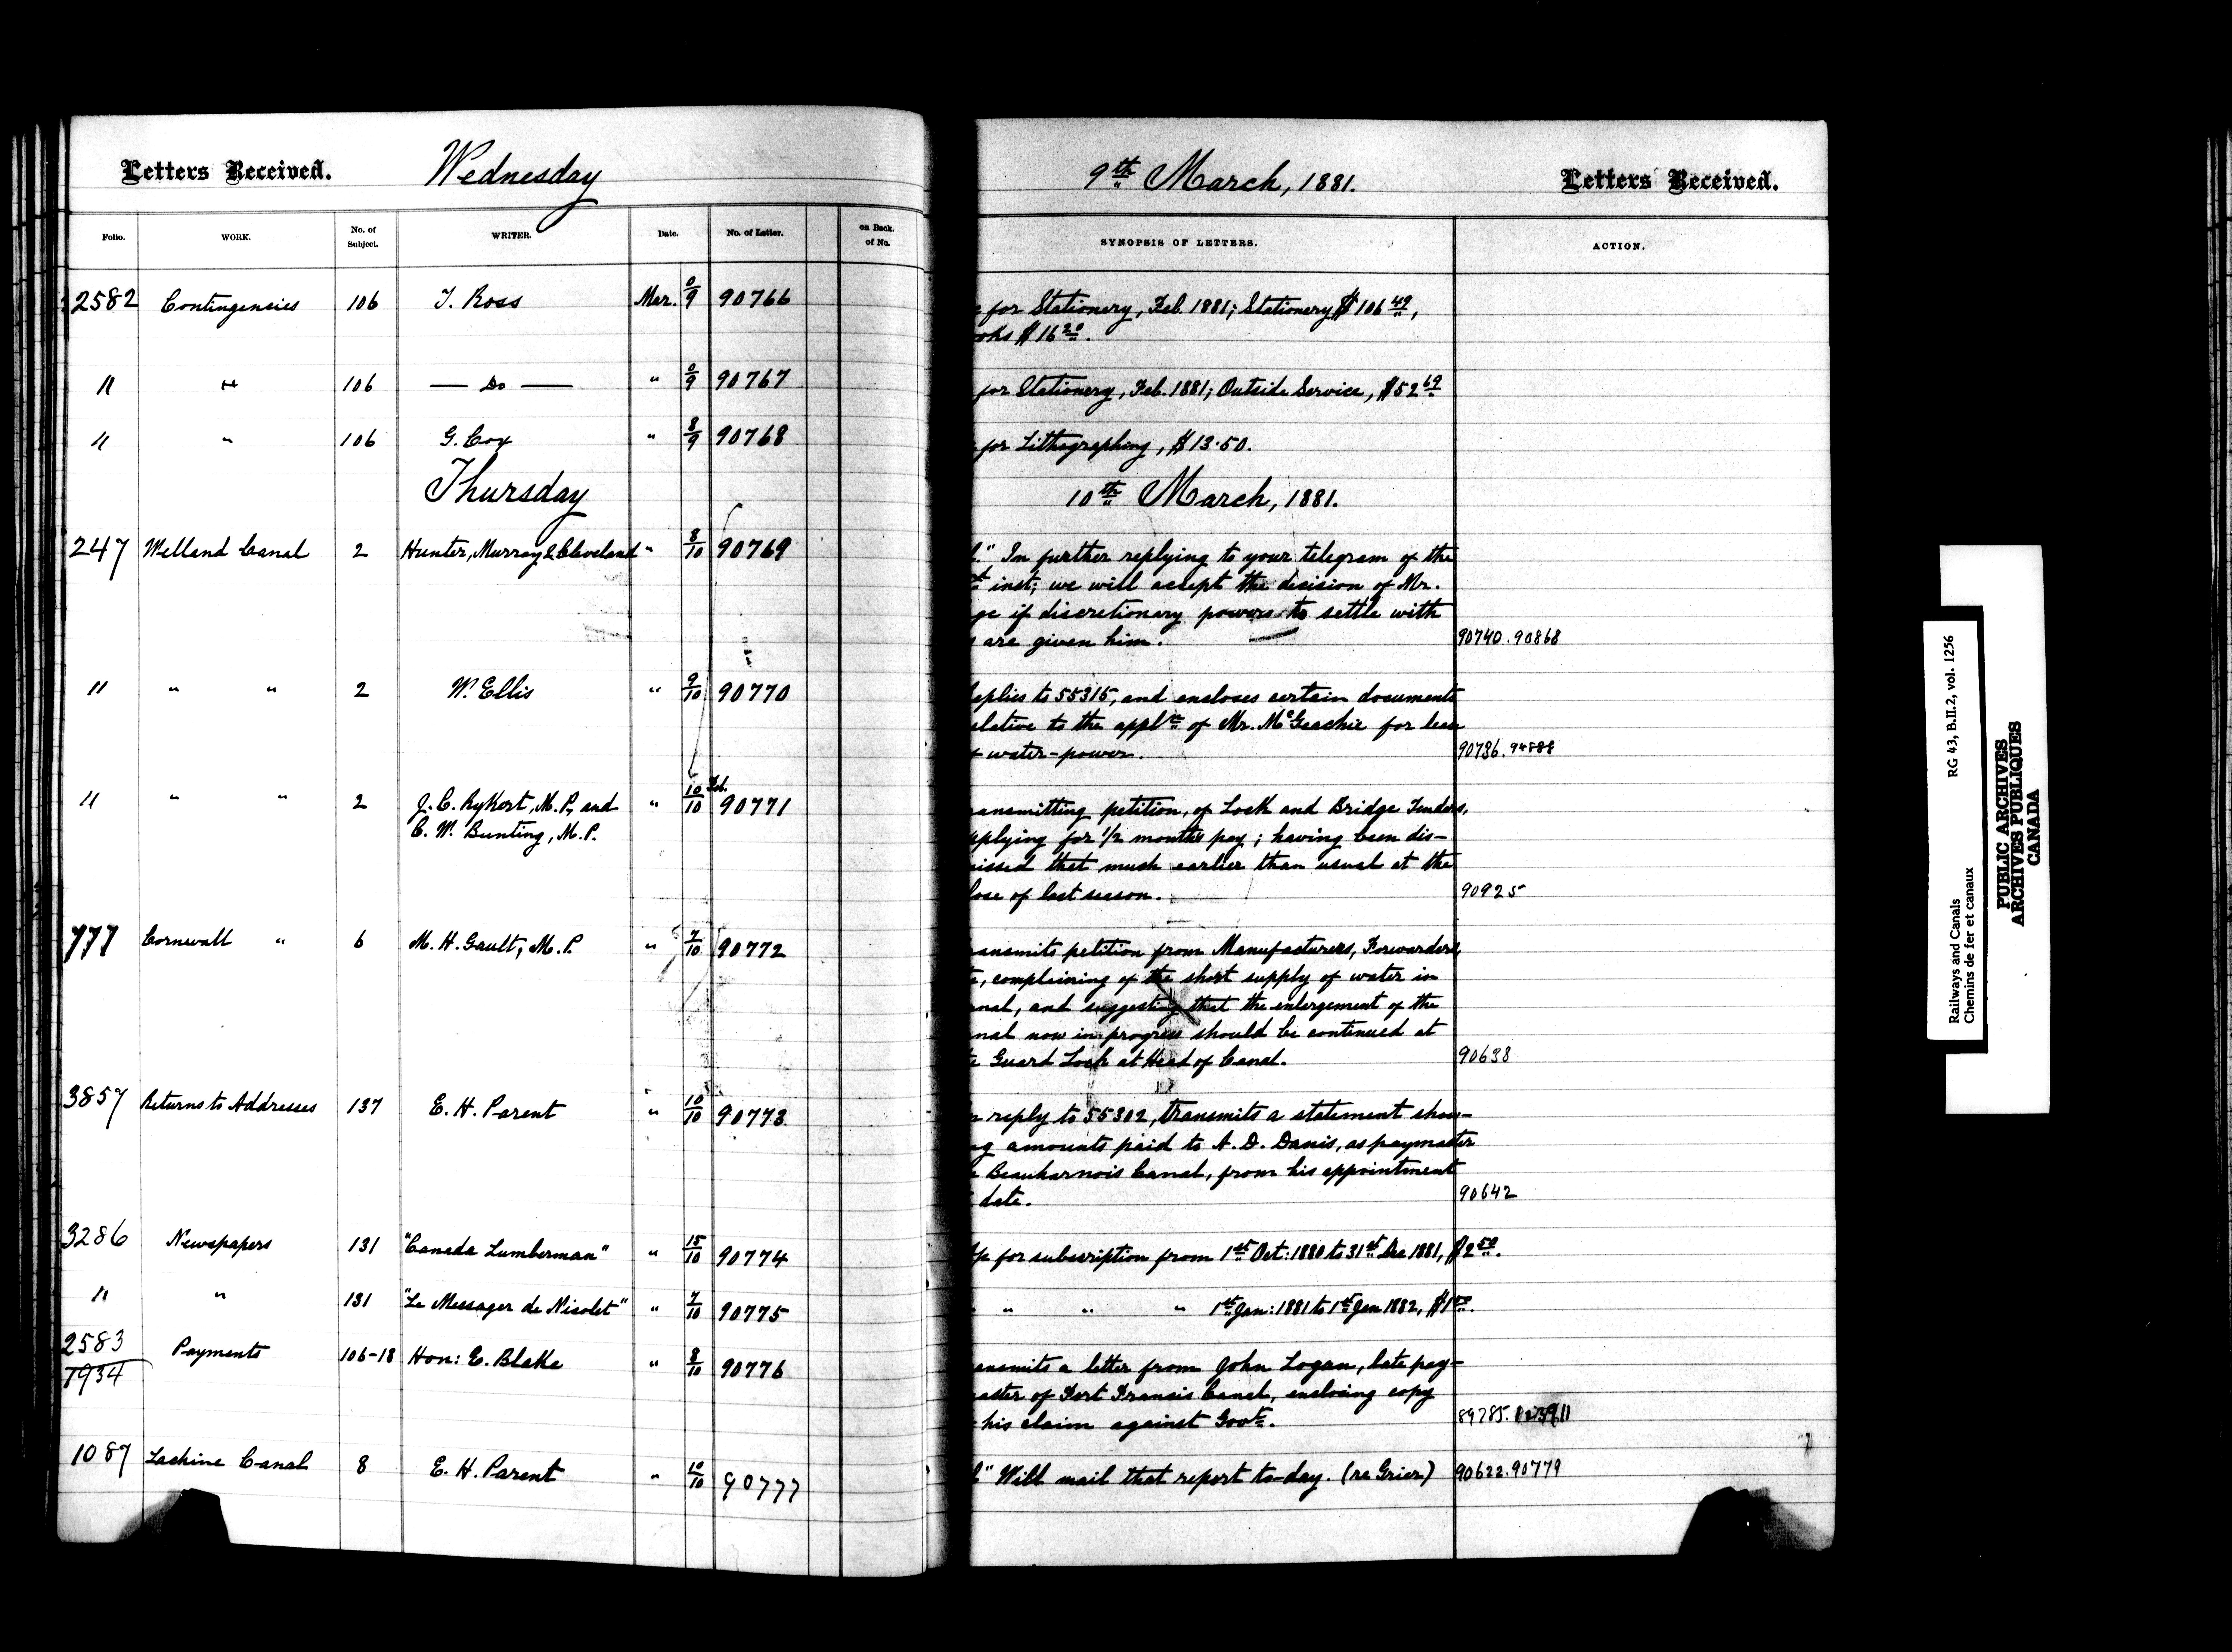 Letters Received. Wednesday 9th March, 1881. Letters Received.
Folio. WORK. No. of Subject. WRITER. Date. No. of Letter. on Back of No. SYNOPSIS OF LETTERS. ACTION.
2582 Contingencies 106 T. Ross Mar. 0/9 90766 for Stationery, Feb. 1881; Stationery $106 49,
oks $16 20.
" " 106 — Do — " 0/9 90767 for Stationery, Feb. 1881; Outside Service, $52 69
" " 106 G. Cox " 8/9 90768 for Lithographing, $13.50.
Thursday 10th March, 1881.
247 Welland Canal 2 Hunter, Murray & Cleveland " 8/10 90769 " In further replying to your telegram of the
inst; we will accept the decision of Mr.
ge if discretionary powers to settle with
are given him. 90740. 90868
" " " 2 W. Ellis " 9/10 90770 eplies to 55315, and encloses certain documents
elative to the appln of Mr. McGeachie for lease
water-power. 90736.
" " " 2 J. C. Rykert, M.P., and " 10/10 Feb. 90771 ansmitting petition, of Lock and Bridge Tenders,
C. W. Bunting, M.P. pplying for 1/2 months pay; having been dis-
issed that much earlier than usual at the
lose of last season. 90925
777 Cornwall " 6 M. H. Gault, M.P. " 7/10 90772 ansmits petition from Manufacturers, Forwarders,
complaining of the short supply of water in
anal, and suggesting that the enlargement of the
nal now in progress should be continued at
Guard Lock at Head of Canal. 90638
3857 Returns to Addresses 137 E. H. Parent " 10/10 90773. reply to 55302, transmits a statement show-
ng amounts paid to A. D. Danis, as paymaster
Beauharnois Canal, from his appointment
date. 90642
3286 Newspapers 131 "Canada Lumberman" " 15/10 90774 for subscription from 1st Oct: 1880 to 31st Dec 1881, $2 50.
" " 131 "Le Messager de Nicolet" " 7/10 90775 " " " 1st Jan: 1881 to 1st Jan 1882, $1 50.
2583 Payments 106-18 Hon: E. Blake " 8/10 90776 ansmits a letter from John Logan, late pay-
1934 aster of Fort Francis Canal, enclosing copy
his claim against Govt. 89285.
1087 Lachine Canal 8 E. H. Parent " 10/10 90777 " Will mail that report to-day. (re Grier) 90622. 90779
Railways and Canals RG 43, B.II.2, vol. 1256
Chemins de fer et canaux
PUBLIC ARCHIVES
ARCHIVES PUBLIQUES
CANADA